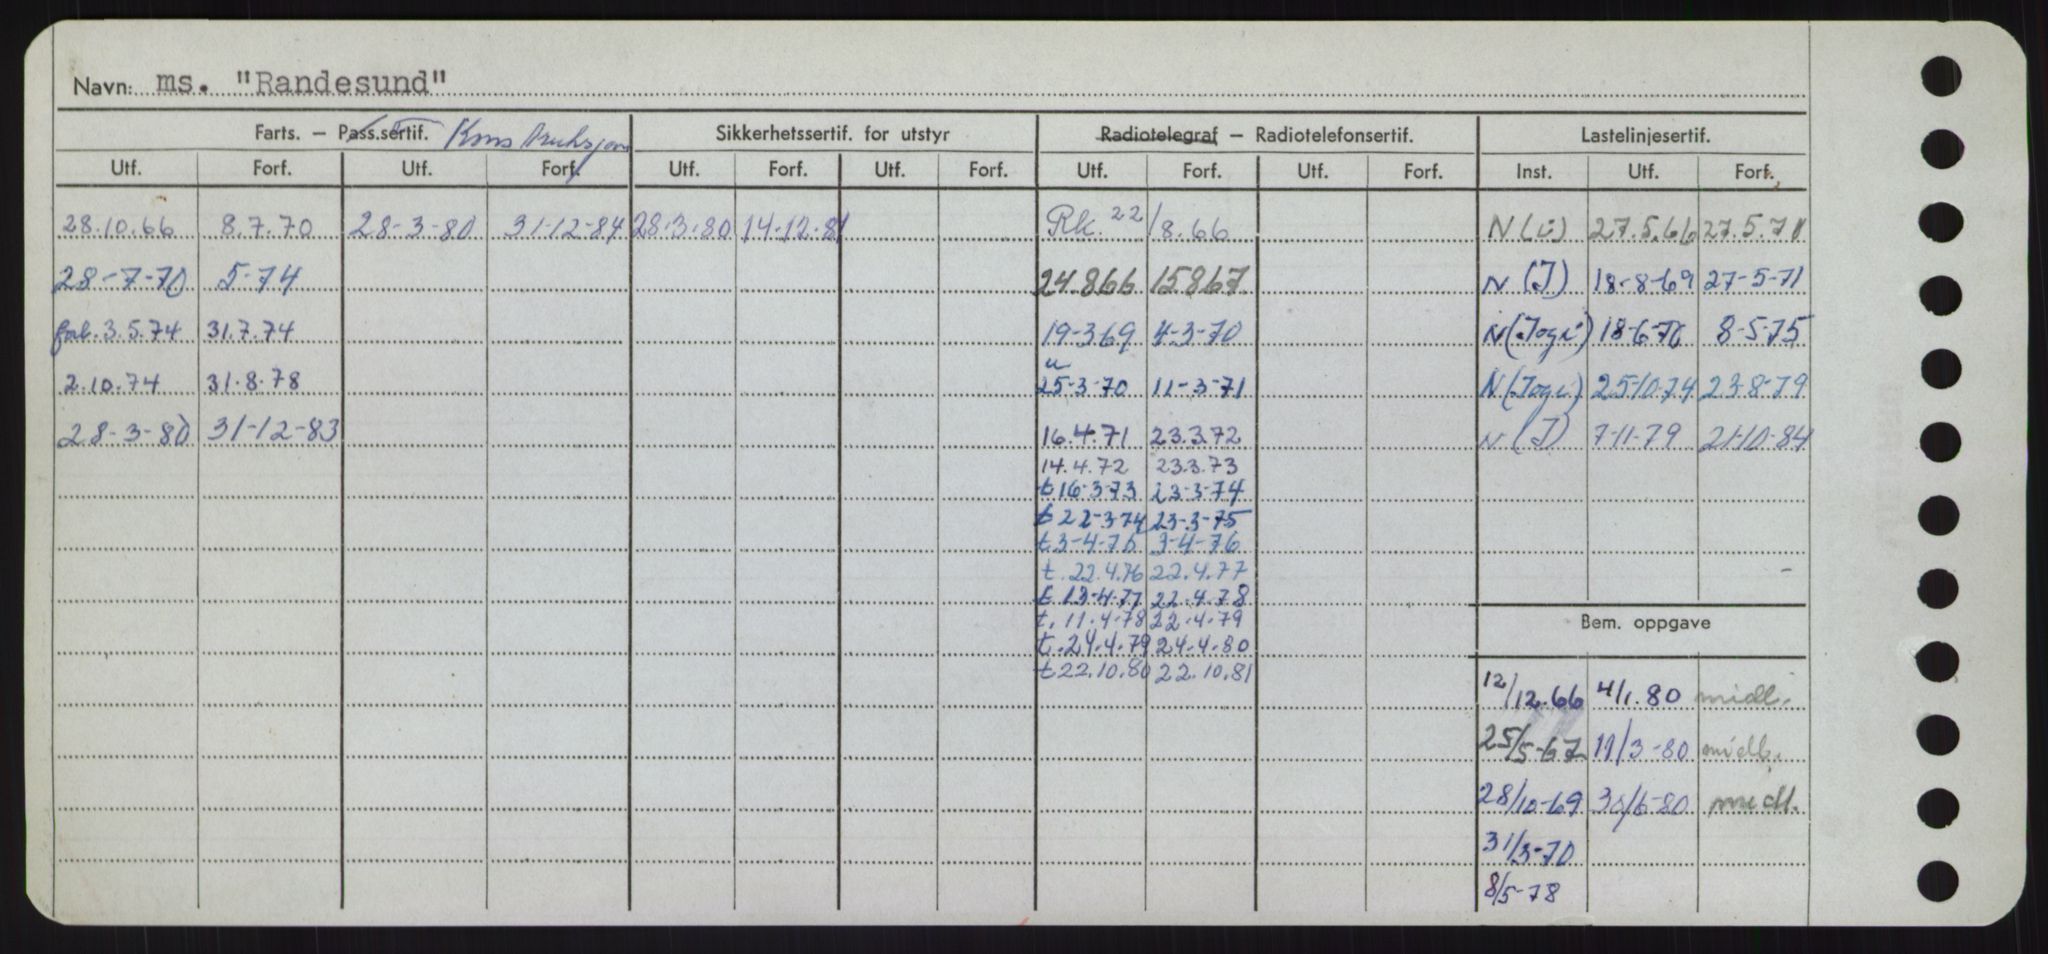 Navn: ms. "Randesund"
Farts. – Pass.sertif. Kons Sikkerhetssertif. for utstyr Radiotelegraf – Radiotelefonsertif. Lastelinjesertif.
Utf. Forf. Utf. Forf. Utf. Forf. Utf. Forf. Utf. Forf. Utf. Forf. Inst. Utf. Forf.
28.10.66 8.7.70 28-3-80 31-12-84 28.3.80 14-12-81 Rk. 22/8.66 N(i) 27.5.66 27.5.71
28-7-70 5-74 24.866 15867 N(I) 18-8-69 27-5-71
forl. 3.5.74 31.7.74 19-369 4-3-70 N(Jogi) 18-6-70 8-5-75
2.10.74 31.8.78 u 25-3-70 11-3-71 N(Jogi) 25-10-74 23-8-79
28-3-80 31-12-83 16.4.71 23.3.72 N(I) 7-11-79 21-10-84
14.4.72 23.3.73
t 16-3-73 23-3-74
t 22-3-74 23-3-75
t.3-4-75 3-4-76
t.22.4.76 22.4.77
t 13-4-77 22.4.78
t. 11.4.78 22.4.79
t.24.4.79 24.4.80
t 22.10.80 22.10.81
Bem. oppgave
12/12.66 4/1.80 midl.
25/5-67 11/3-80 midl.
28/10-69 30/6-80 midl.
31/3-70
8/5-78